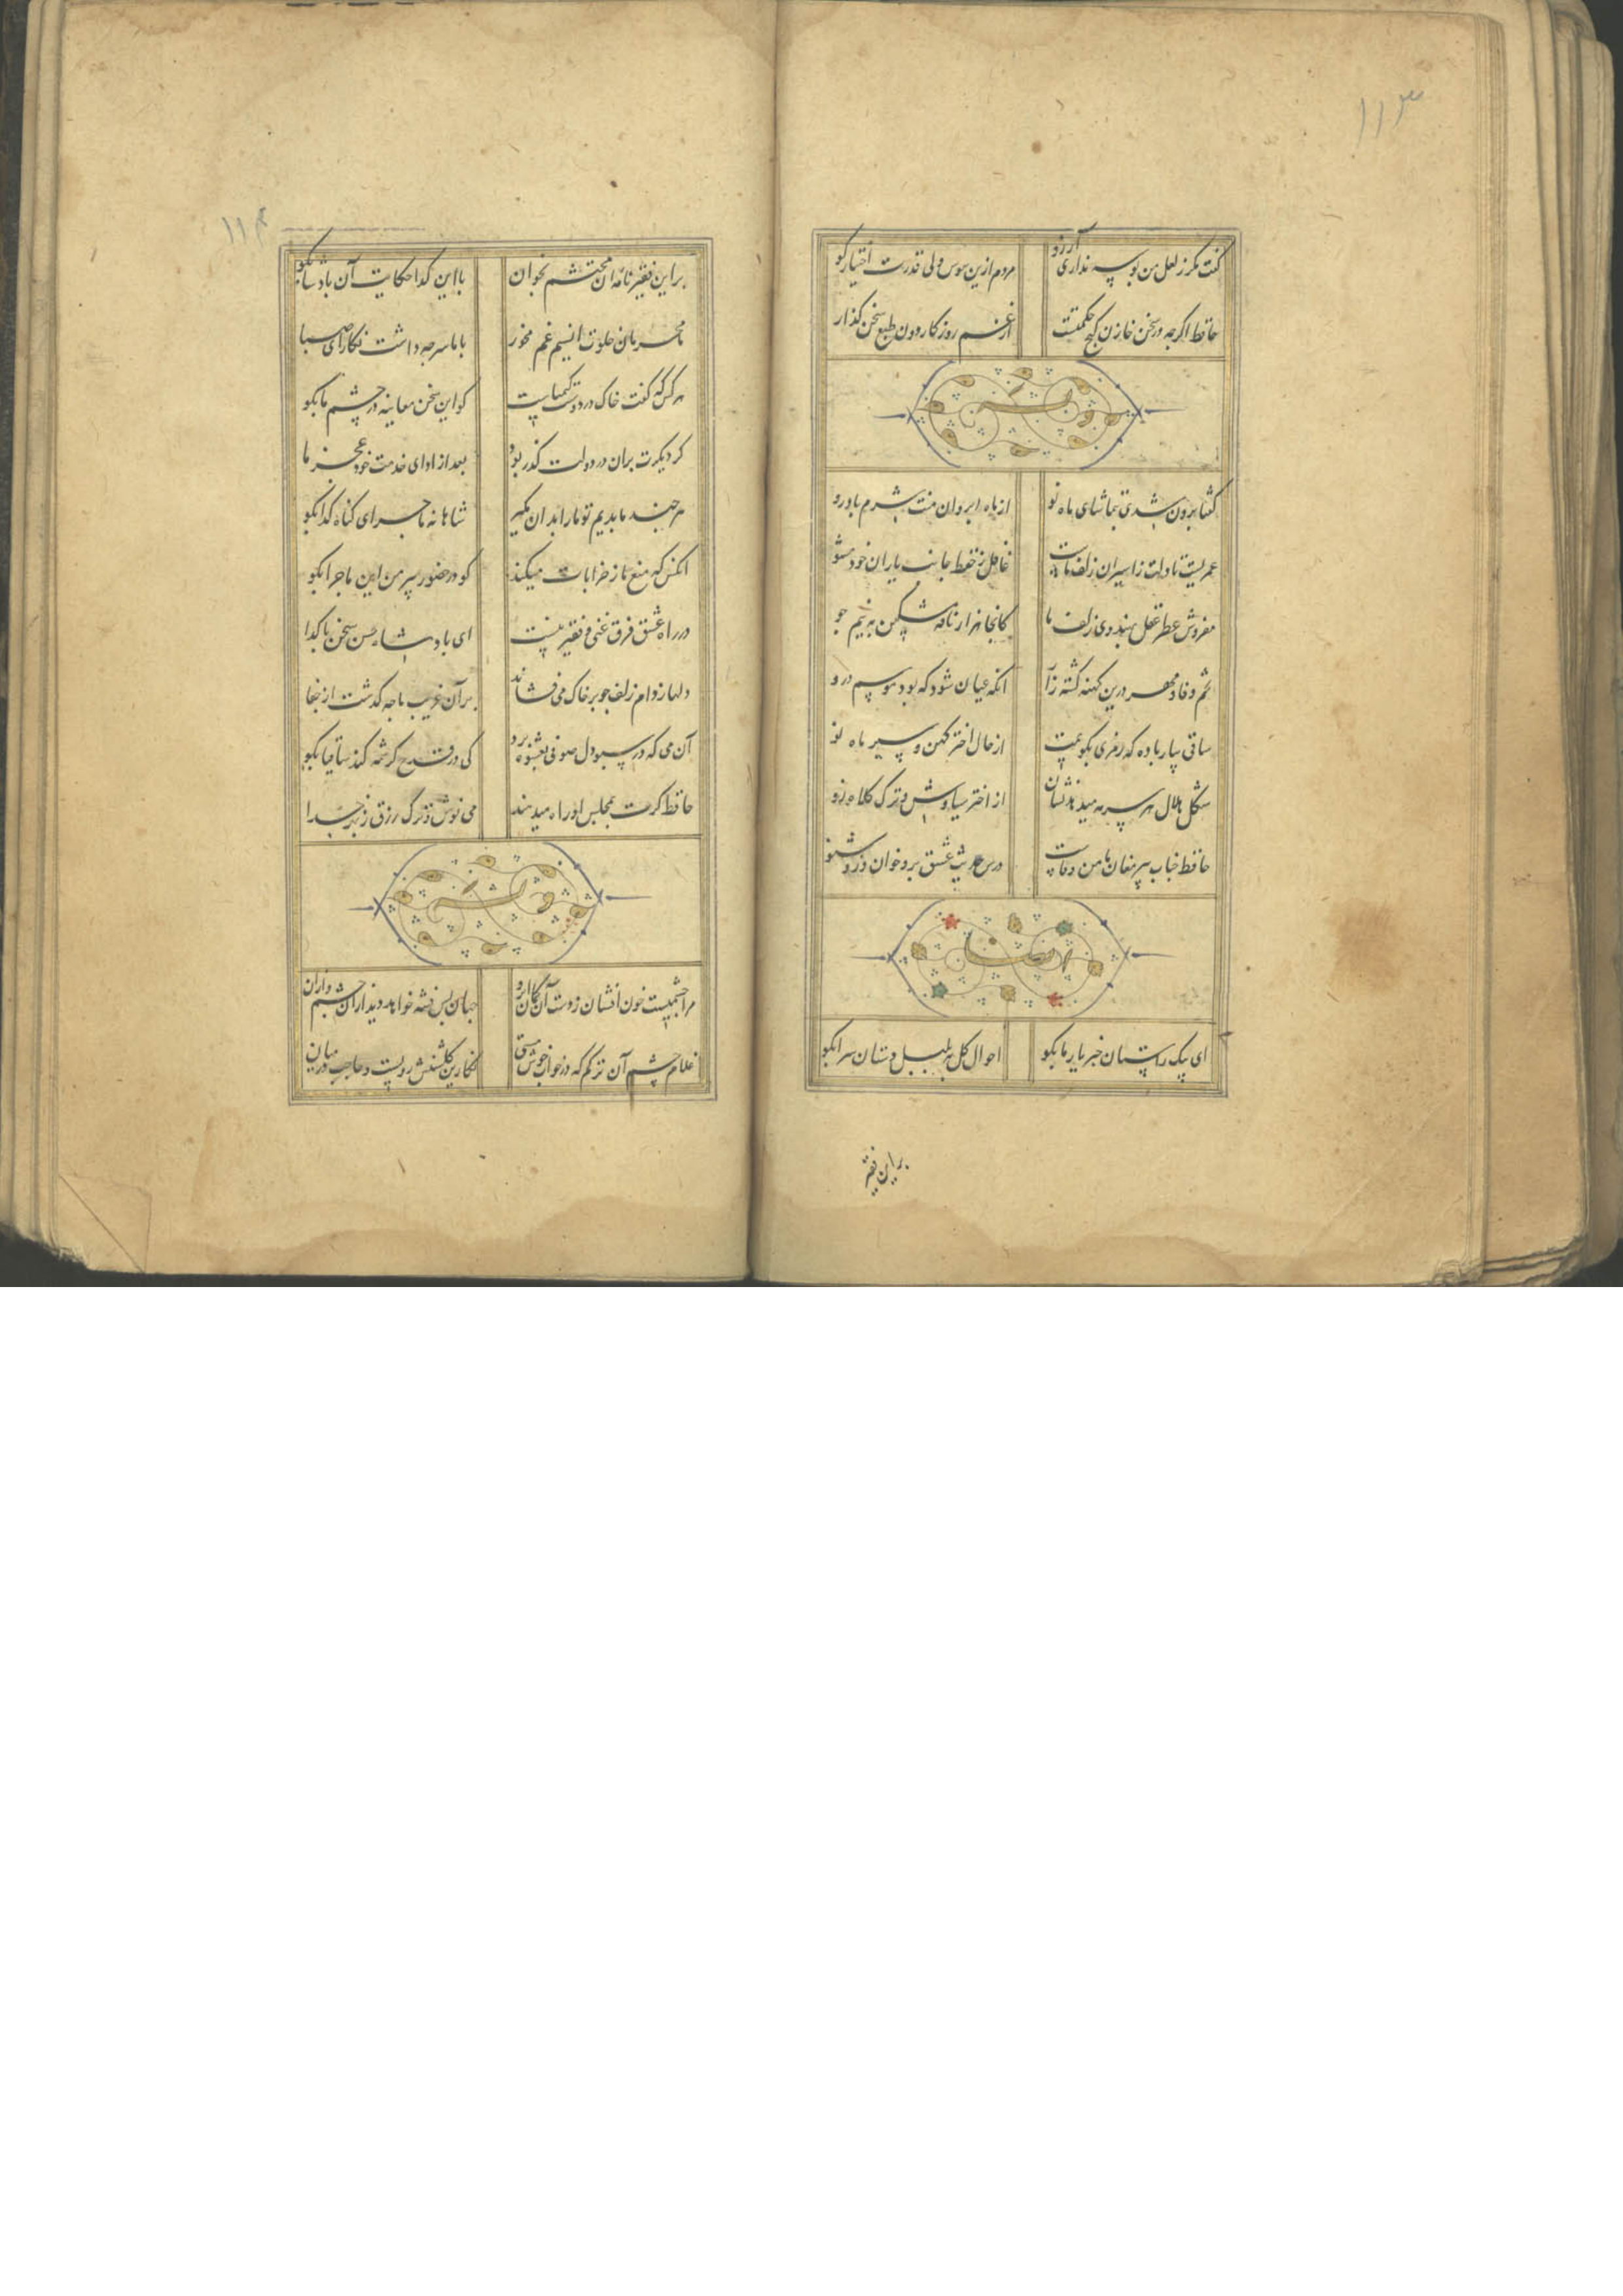 ۱۱۳
کفت مکر ز لعل من بوسه نداری آرزو
مردم ازین هوس ولی قدرت اختیار کو
حافظ اکرچه در سخن خازن کنج حکمتست
از غم روزکار دون طبع سخن کذار
وله
کفتا برون شدی تماشای ماه نو
از ماه ابروان منت شرم باد رو
عمریست تا دلت ز اسیران زلف ماست
غافل ز حفظ جانب یاران خود مشو
مفروش عطر عقل بهندوی زلف ما
کانجا هزار نافه مشکین به نیم جو
تخم وفا و مهر درین کهنه کشته زار
آنکه عیان شود که بود موسم درو
ساقی بیار باده که رمزی بکویمت
از حال اختر کهن و سیر ماه نو
شکل هلال هر سر مه میدهد نشان
از اختر سیاوش و ترک کلاه زو
حافظ جناب پیر مغان مامن وفاست
درس حدیث عشق برو خوان وزو شنو
ایضا
ای پیک راستان خبر یار ما بکو
احوال کل به بلبل دستان سرا بکو
براین فقیر
۱۱۴
براین فقیر نامه آن محتشم بخوان
با این کدا حکایت آن بادشا بکو
ما محرمان خلوت انسیم غم مخور
با ما سر چه داشت نکار ای صبا
هرکس که کفت خاک در دوست کیمیاست
کو این سخن معاینه در چشم ما بکو
کر دیکرت بران در دولت کذر بود
بعد از ادای خدمت خود عجز ما
هرچند ما بدیم تو ما را بدان مکیر
شاهانه ماجرای کناه کدا بکو
انکس که منع ما ز خرابات میکند
کو در حضور پیر من این ماجرا بکو
در راه عشق فرق غنی و فقیر نیست
ای بادشاه حسن سخن با کدا
دلها ز دام زلف چو بر خاک می فشاند
بر آن غریب ما چه کذشت از جفا
آن می که در سبو دل صوفی بعشوه برد
کی در قدح کرشمه کند ساقیا بکو
حافظ کرت بمجلس او راه میدهند
می نوش و ترک رزق ز بهر خدا
وله
مرا چشمیست خون افشان ز دست آن کمان ابرو
جهان بس فتنه خواهد دید از آن چشم و از آن
غلام چشم آن ترکم که در خواب خوش مستی
نکارین کلشنش رویست و حاجب در میان